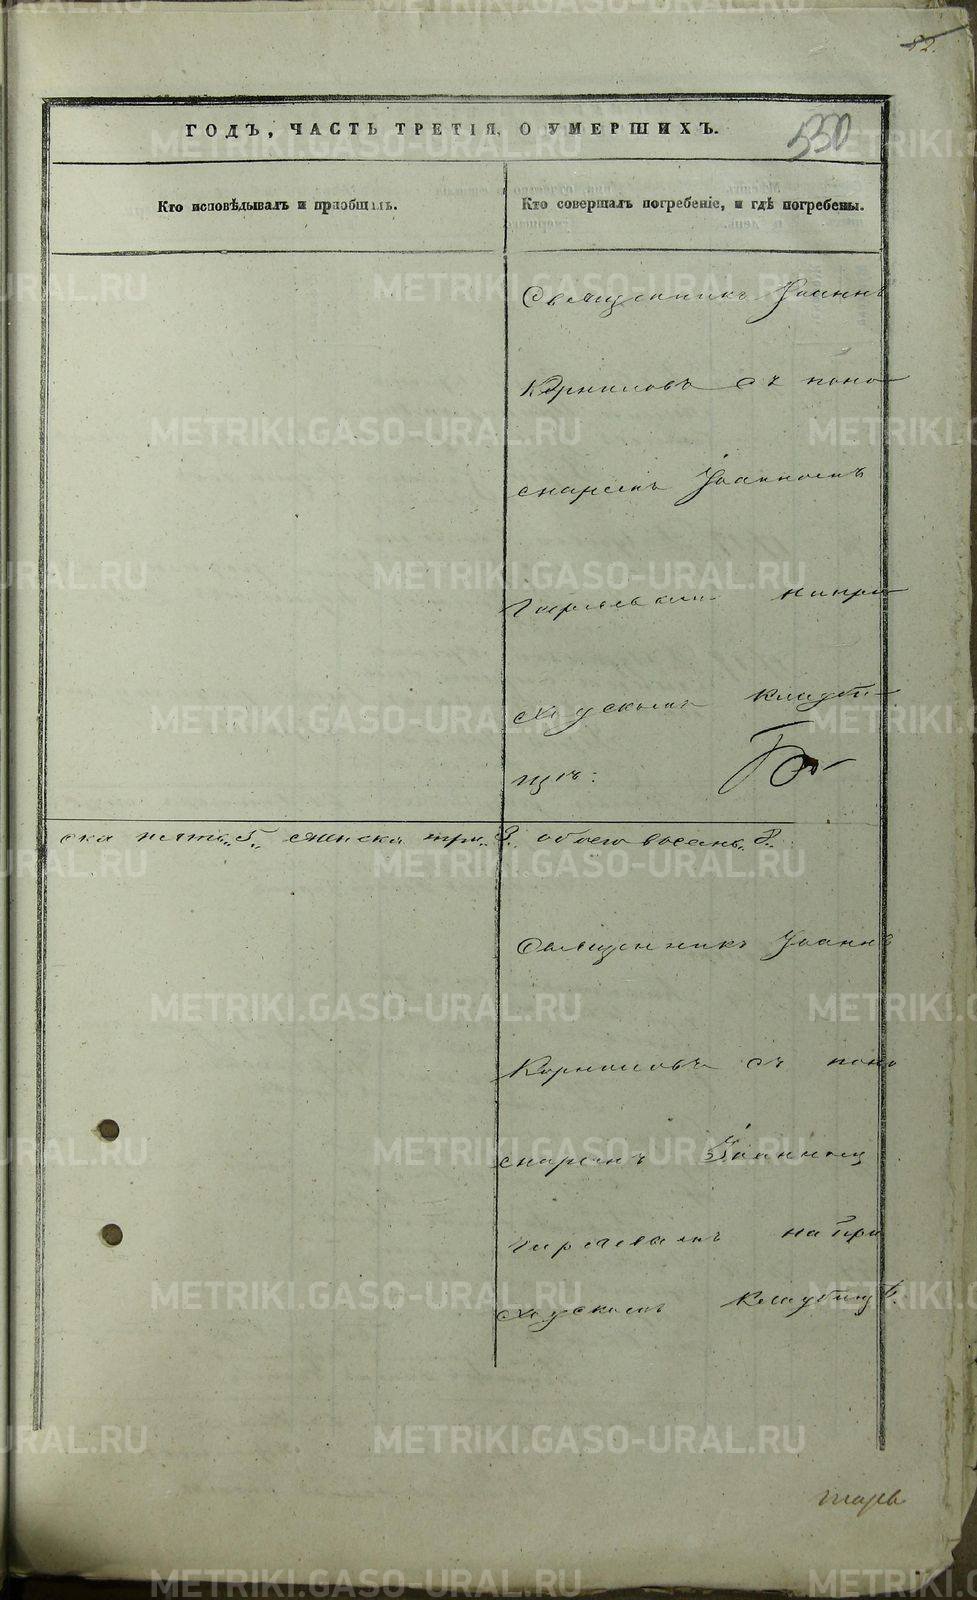 82.
ГОДЪ, ЧАСТЬ ТРЕТІЯ, О УМЕРШИХЪ.
550
Кто исповѣдывалъ и пріобщалъ.
Кто совершалъ погребеніе, и гдѣ погребены.
Священникъ Іоаннъ
Корниловъ съ поно-
маремъ Іоанномъ
на при-
ходскомъ кладби-
щѣ:
ска пять „5„ женска три „3„ обоего восемь „8„
Священникъ Іоаннъ
Корниловъ съ поно
маремъ Іоанномъ
на при
ходскомъ кладбищѣ.
METRIKI.GASO-URAL.RU